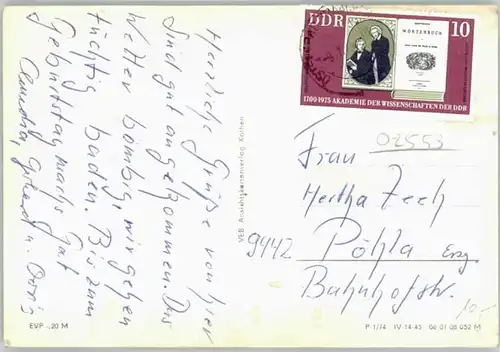 Herzliche Grüße von hier
sind gut angekommen. Das
Wetter bombig, wir gehen
tüchtig baden. Bis zum
Geburtstag machs gut
Claudia, Gerhard u. Doris
VEB Ansichtskartenverlag Köthen
EVP -,20 M
DDR
10
WÖRTERBUCH
1700-1975 AKADEMIE DER WISSENSCHAFTEN DER DDR
02553
Frau
Hertha Zech
9442 Pöhla Erzg.
Bahnhofstr.
10,-
P 1/74 IV-14-45 06 01 08 052 M